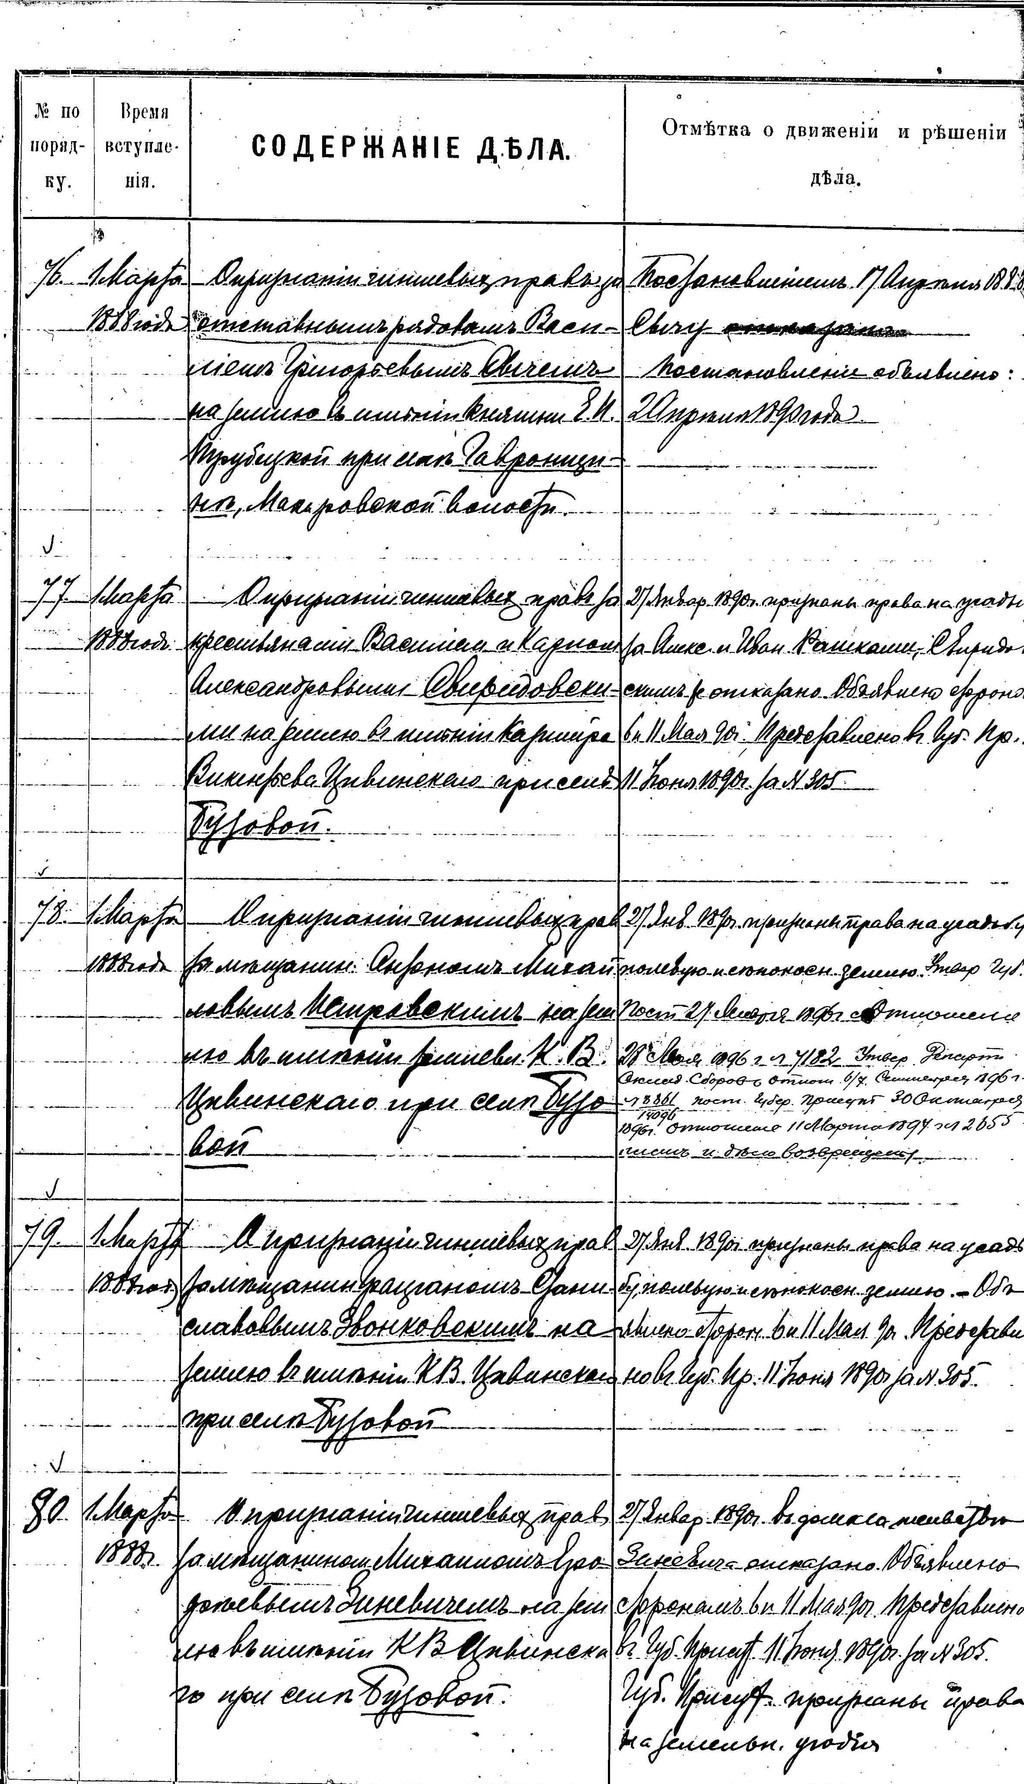 № по поряд- ку.
Время вступле- нія.
СОДЕРЖАНІЕ ДѢЛА.
Отмѣтка о движеніи и рѣшеніи дѣла.
76. 1 Марта 1888 года
О признаніи чиншевыхъ правъ за
отставнымъ рядовымъ Васи-
ліемъ Григорьевымъ Свичемъ
на землю въ имѣніи Княгини Е.И.
Трубецкой при селѣ Гавронщи-
нѣ, Макаровской волости.
Постановленіемъ 17 Апрѣля 1888
Свичу
Постановленіе объявлено:
2 Апрѣля 1890 года
77. 1 Марта 1888 года
О признаніи чиншевыхъ правъ за
крестьянами Василіемъ и Карпомъ
Александровыми Свиридовски-
ми на землю въ имѣніи Казиміра
Викентьева Цивинскаго при селѣ
Бузовой.
27 Январ. 1890г. признаны права на усадь
за Алекс. и Иван. Свиридо
скимъ отказано. Объявлено сторона
6 и 11 Мая 90г. Представлено въ Губ. Пр.
11 Іюня 1890г. за № 305.
78. 1 Марта 1888 года
О признаніи чиншевыхъ прав
за мѣщанин. Антономъ Михай
ловымъ Петровскимъ на зем
лю въ имѣніи К. В.
Цивинскаго при селѣ Бузо
вой
27 Янв. 1890г. признаны права на усадьбу
полевую и сѣнокосн. землю. Утвер. Губ.
Пост. 27 1896г. Отношеніе
28 Мая 1896 г. № 7182 Утвер. Департ.
Оклад. Сборовъ отнош. Сентября 1896 г.
№ 8861 пост. Губер. Присут. 30 Октября
1896г. Отношеніе 11 Марта 1897 г. № 2655
и дѣло возвращено.
79. 1 Марта 1888 год
О признаніи чиншевыхъ прав
за мѣщанин. Стани
славовымъ Звонковскимъ на
землю въ имѣніи К В. Цивинскаго
при селѣ Бузовой
27 Янв. 1890г. признаны права на усадь
бу, полевую и сѣнокосн. землю. - Объ
явлено сторон. 6 и 11 Мая 90г. Представле
но въ Губ. Пр. 11 Іюня 1890г. за № 305.
80. 1 Марта 1888г.
О признаніи чиншевыхъ прав
за мѣщаниномъ Михаиломъ Еро
фѣевымъ Зиневичемъ на зем
лю въ имѣніи К В Цивинска
го при селѣ Бузовой.
27 Январ. 1890г. въ домогательствѣ
Зиневича отказано. Объявлено
сторонамъ 6 и 11 Мая 90г. Представлено
въ Губ. Присут. 11 Іюня 1890г. за № 305.
Губ. Присут. признаны права
на земельн. угодія